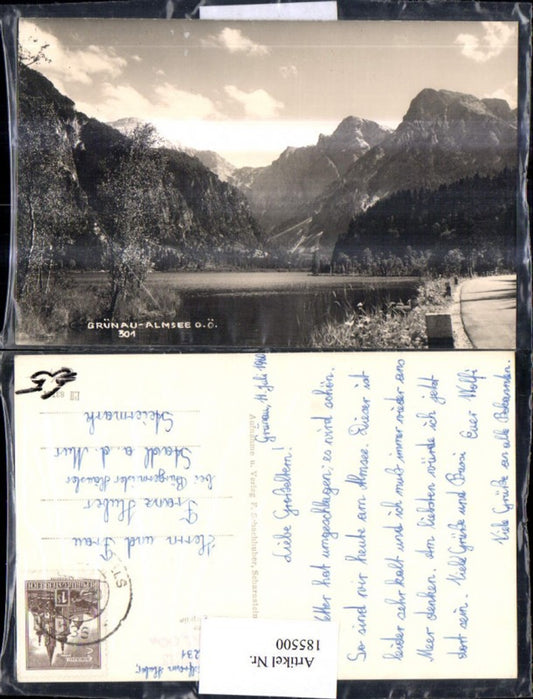 GRÜNAU-ALMSEE O.Ö.
301
Grünau, 11. Juli 1960
Liebe Großeltern!
hat umgeschlagen; es wird schön.
So sind wir heute am Almsee. Dieser ist
leider sehr kalt und ich muß immer wieder ans
Meer denken. Am liebsten würde ich jetzt
dort sein. Viele Grüße und Bussi Euer Wolfi
Viele Grüße an alle Bekannten.
Aufnahme u. Verlag
Herrn und Frau
Franz Huber
bei Bürgermeister
Stadl a. d. Mur
Steiermark
REPUBLIK ÖSTERREICH
Artikel Nr.
185500
231